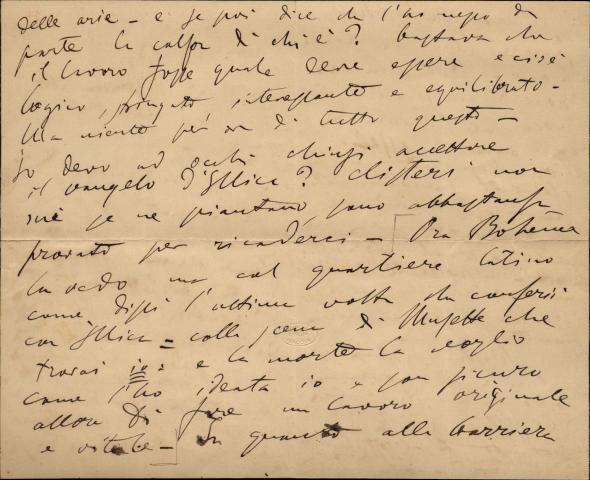 delle arie – e se poi dice che l'ho messo da
parte la colpa di chi è? bastava che
il lavoro fosse quale deve essere e cioè
logico, stringato interessante e equilibrato –
Ma niente per ora di tutto questo –
Io devo ad occhi chiusi accettare
il vangelo d'Illica? clisteri non
me se ne piantano, sono abbastanza
provato per ricaderci – Ora Bohème
la vedo ma col quartiere latino
come dissi l'ultima volta che conferii
con Illica – colla scena di Musette che
trovai io: e la morte la voglio
come l'ho ideata io e son sicuro
allora di fare un lavoro originale
e vitale – In quanto alla barriera